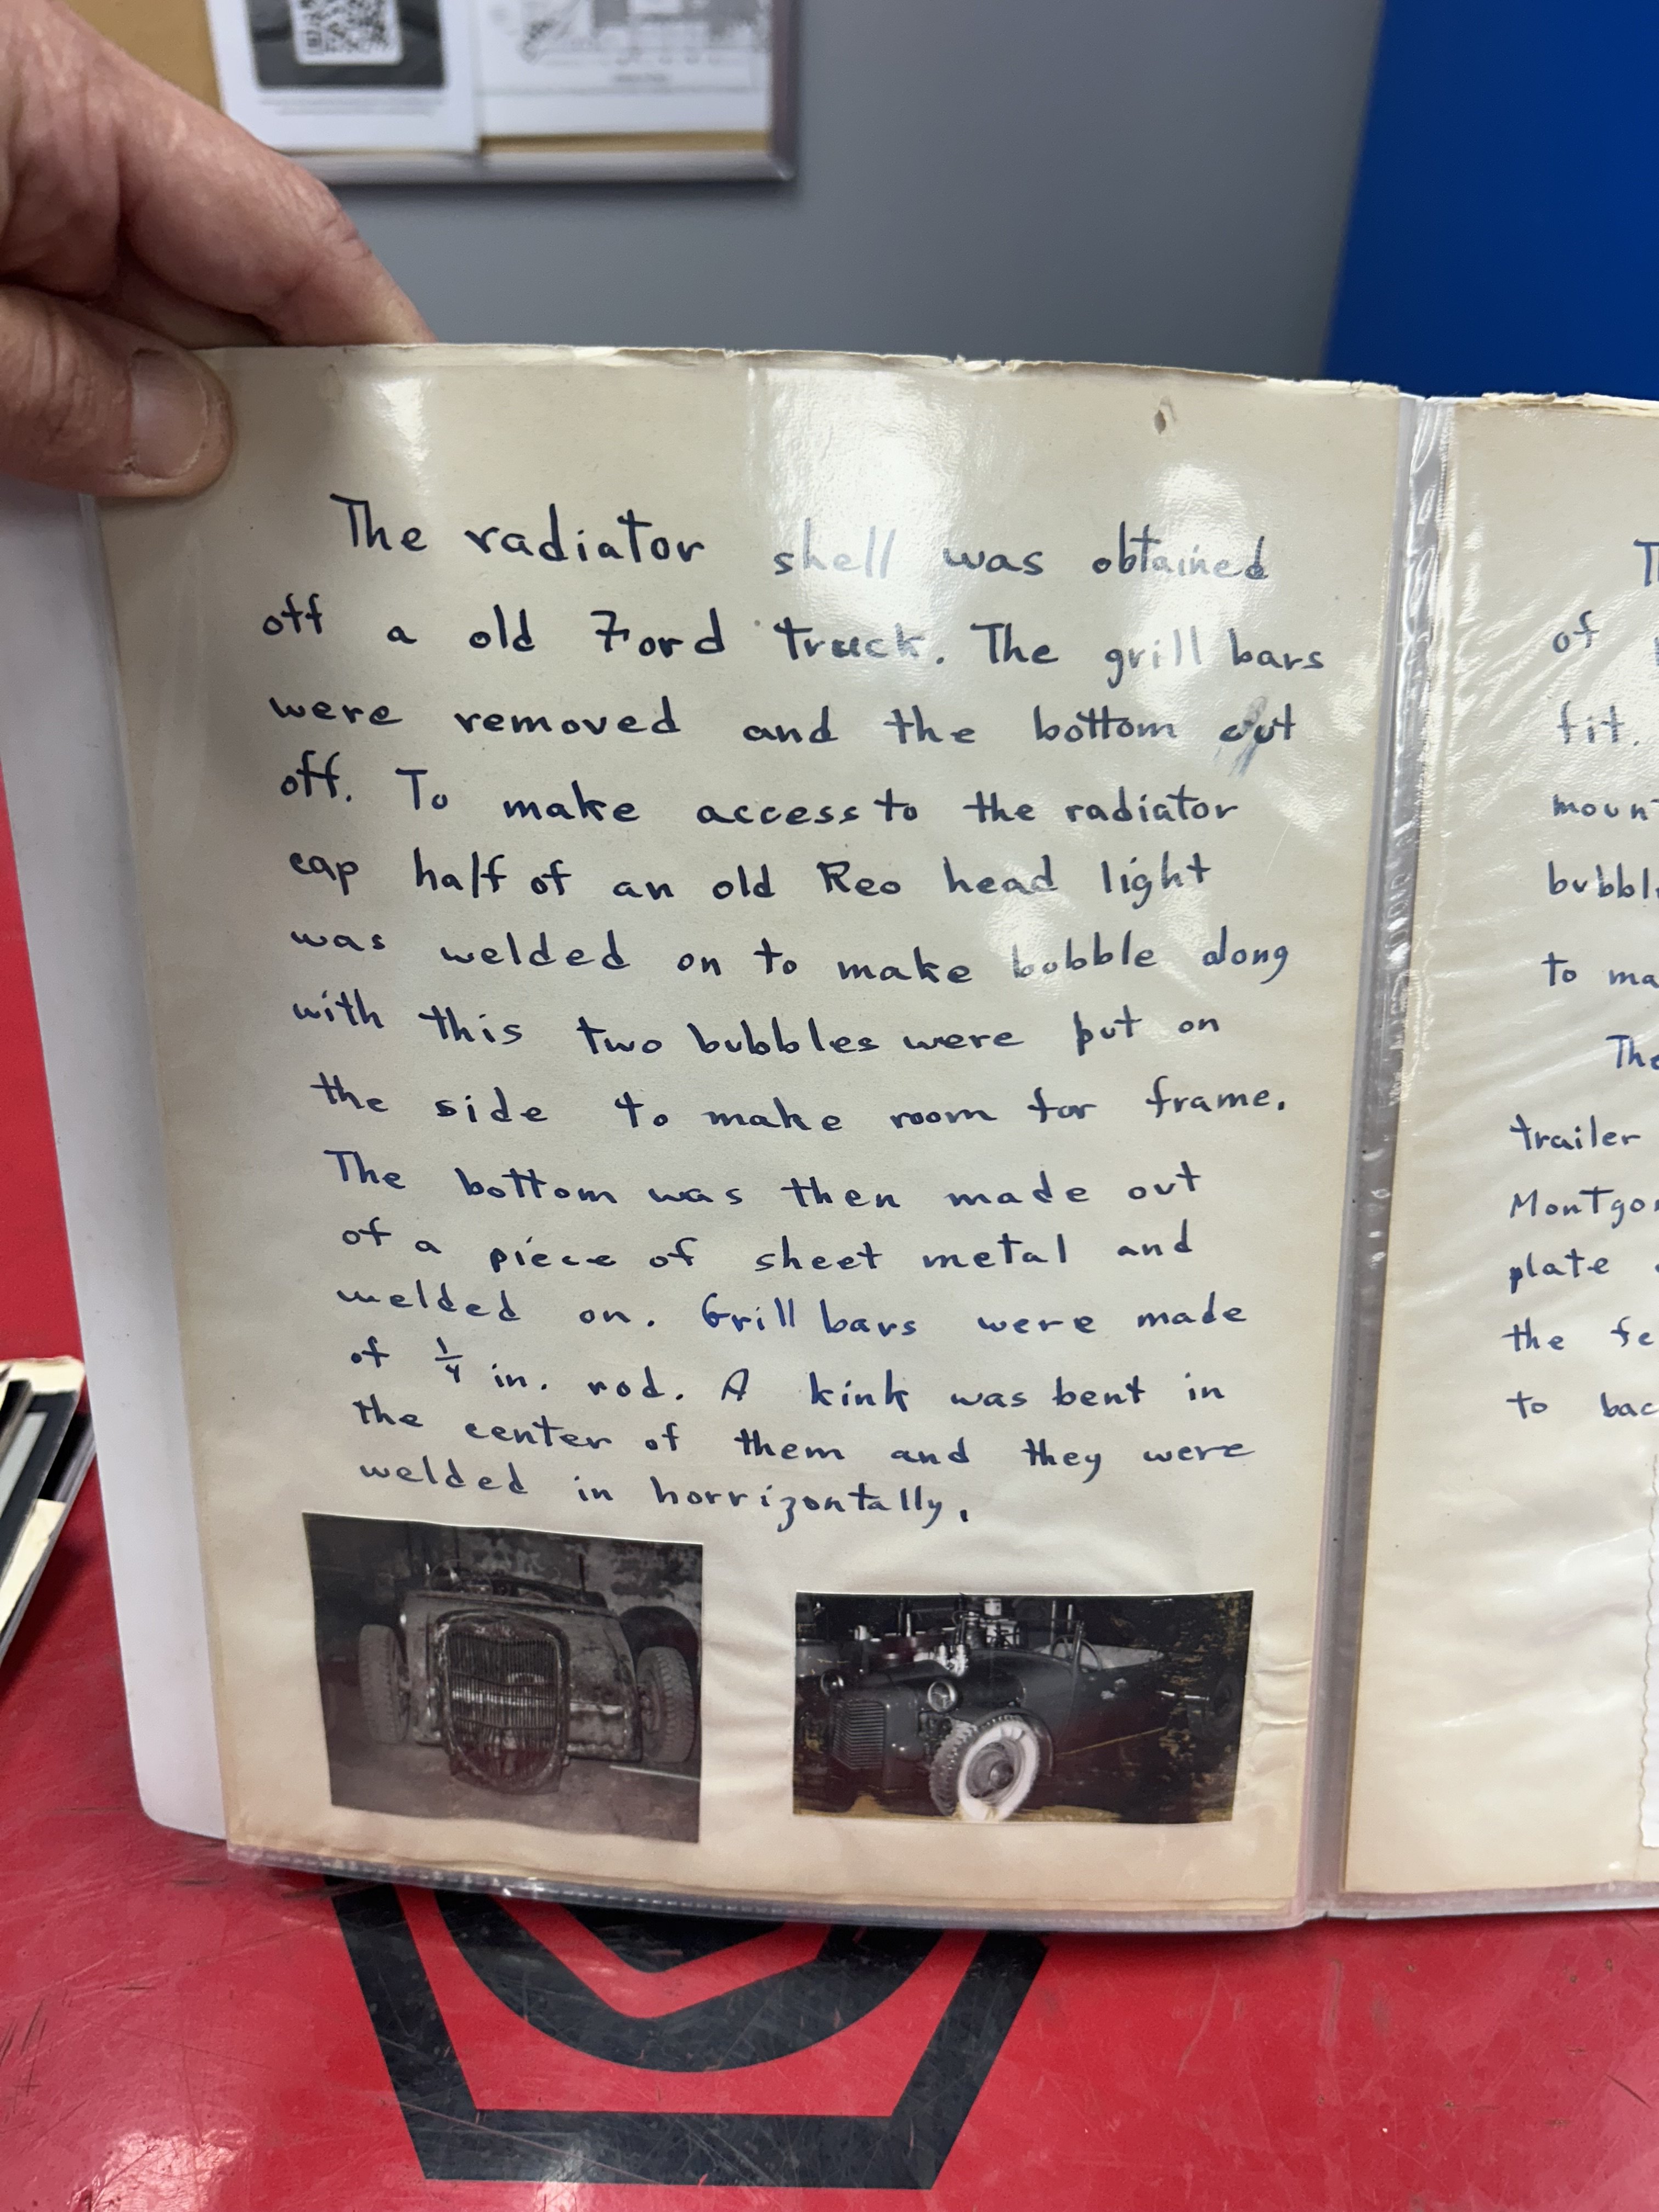 The radiator shell was obtained
off a old Ford truck. The grill bars
were removed and the bottom cut
off. To make access to the radiator
cap half of an old Reo head light
was welded on to make bubble along
with this two bubbles were put on
the side to make room for frame.
The bottom was then made out
of a piece of sheet metal and
welded on. Grill bars were made
of 1/4 in. rod. A kink was bent in
the center of them and they were
welded in horrizontally.
of
fit.
to
trailer
plate
the
to